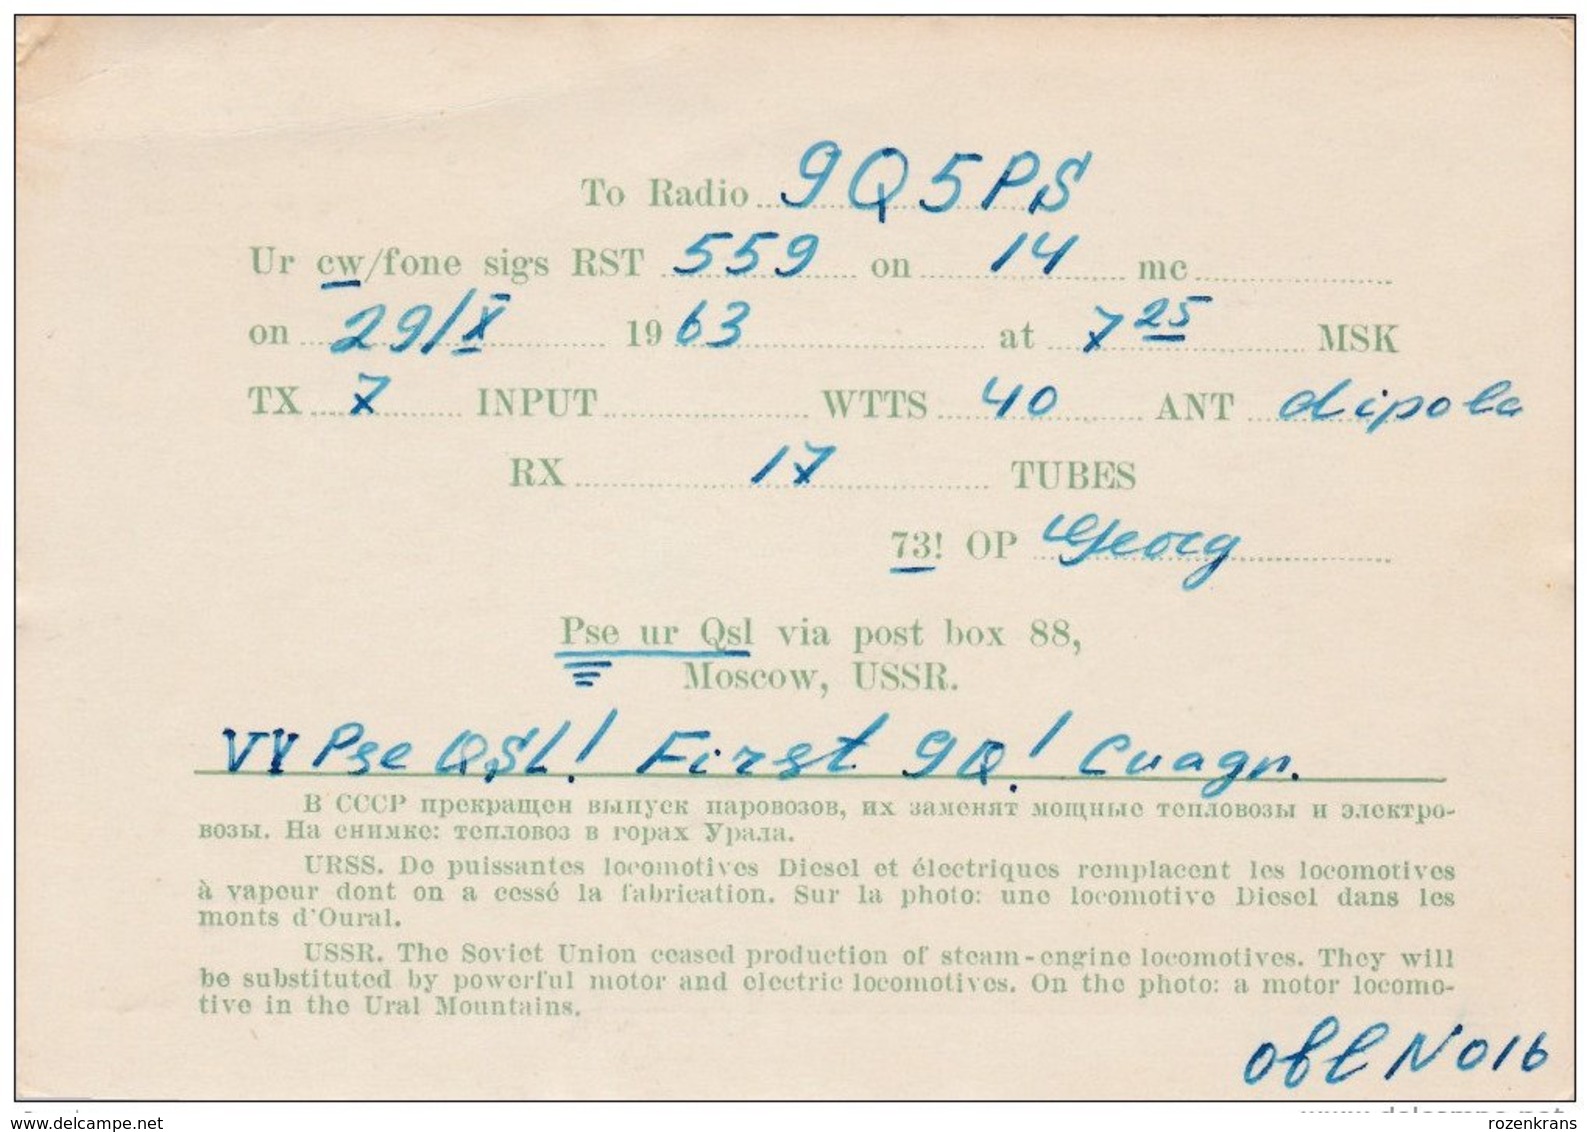 To Radio 9Q5PS
Ur cw/fone sigs RST 559 on 14 mc
on 29/X 1963 at 7 25 MSK
TX 7 INPUT WTTS 40 ANT dipole
RX 17 TUBES
73! OP Georg
Pse ur Qsl via post box 88,
Moscow, USSR.
VY Pse QSL! First 9Q! Cuagn.
В СССР прекращен выпуск паровозов, их заменят мощные тепловозы и электро-
возы. На снимке: тепловоз в горах Урала.
URSS. De puissantes locomotives Diesel et électriques remplacent les locomotives
à vapeur dont on a cessé la fabrication. Sur la photo: une locomotive Diesel dans les
monts d'Oural.
USSR. The Soviet Union ceased production of steam-engine locomotives. They will
be substituted by powerful motor and electric locomotives. On the photo: a motor locomo-
tive in the Ural Mountains.
obl N 016
www.delcampe.net rozenkrans